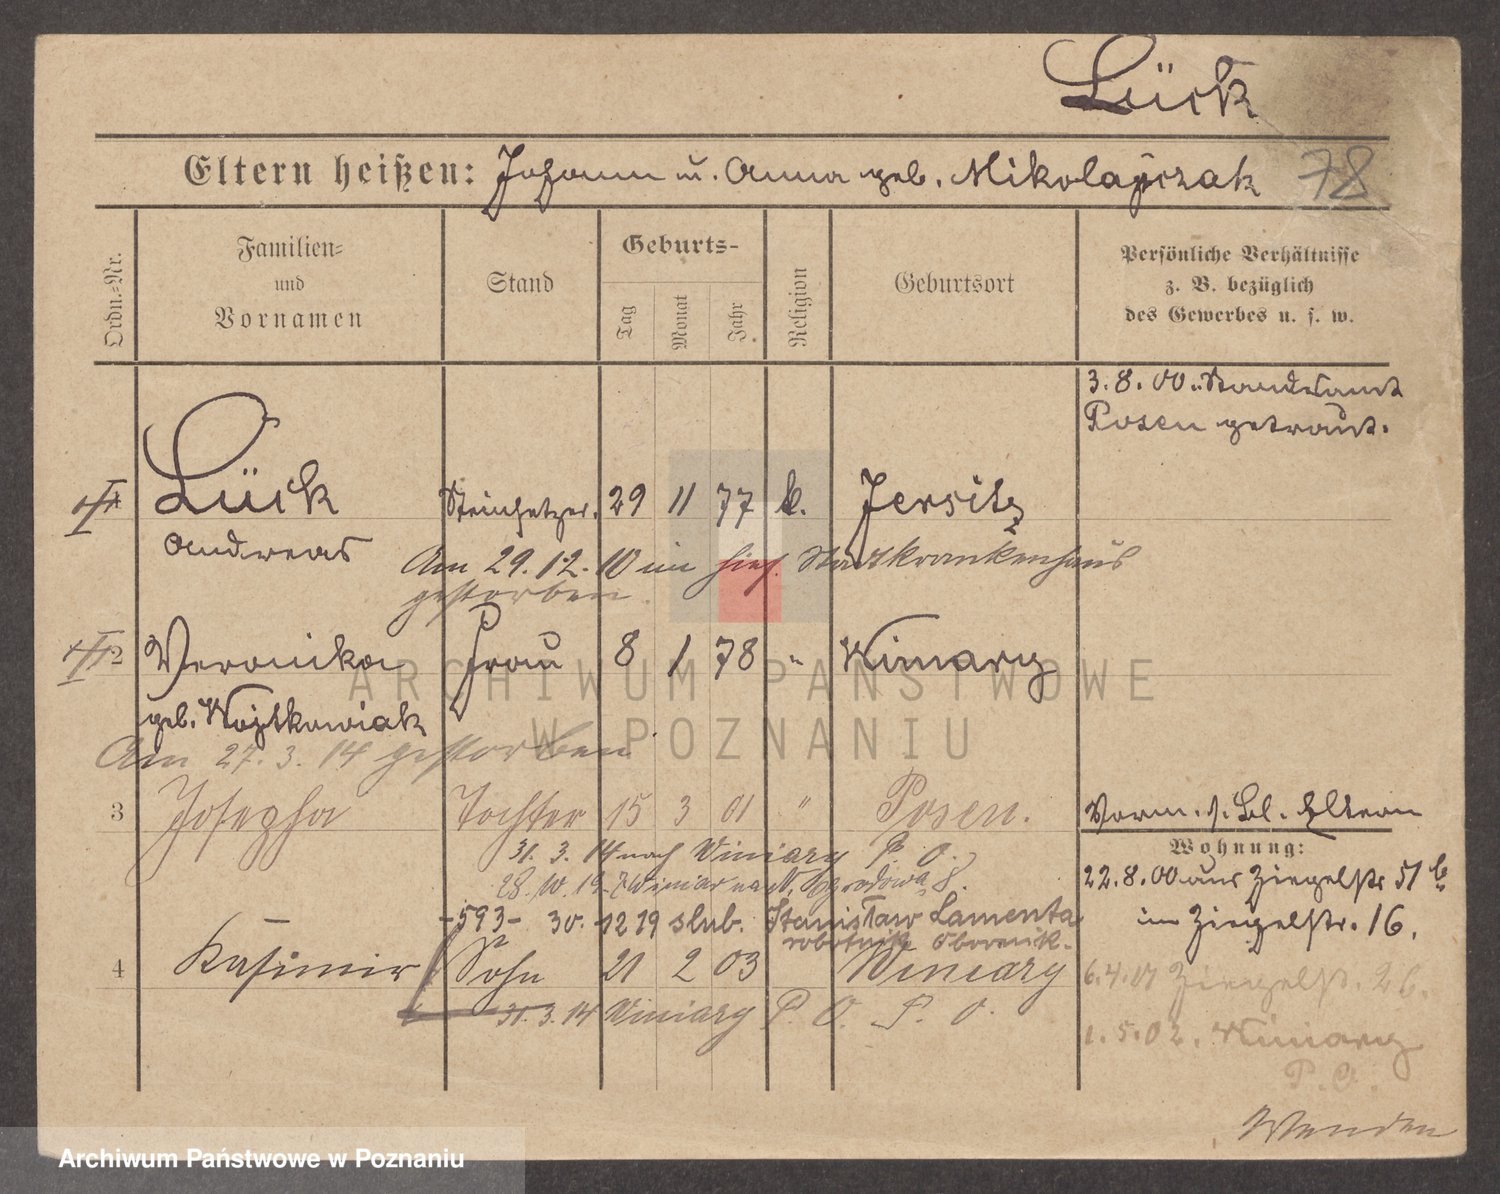 Lück
Eltern heißen: Johann u. Anna geb. Mikolajczak 78
Ordn.=Nr.
Familien=
und
Vornamen
Stand
Geburts-
Tag
Monat
Jahr
Religion
Geburtsort
Persönliche Verhältnisse
z. B. bezüglich
des Gewerbes u. s. w.
3.8.00 Standesamt
Posen getraut.
Lück Steinsetzer. 29 11 77 k. Jersitz
Andreas
Am 29.12.10 im hies. Stadtkrankenhaus
gestorben.
2 Veronika Frau 8 1 78 " Winiary
geb. Wojtkowiak
Am 27.3.14 gestorben
3 Josepha Tochter 15 3 01 " Posen.
31.3.14 nach Winiary P. O.
-593- 30.12 19 slub. Stanisław Lamenta
robotnik
4 Kasimir Sohn 21 2 03 Winiary
31.3.14 Winiary P. O.
Vorm. s. Bl. Eltern
Wohnung:
22.8.00 aus Ziegelstr 51 b
in Ziegelstr. 16.
6.4.01 Ziegelstr. 26.
1.5.02. Winiary
P.O.
Wenden
ARCHIWUM PAŃSTWOWE
W POZNANIU
Archiwum Państwowe w Poznaniu